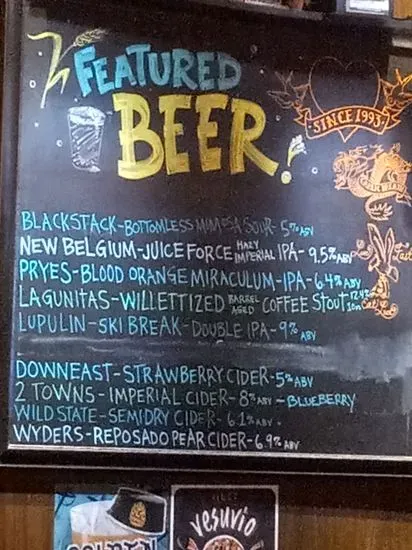 FEATURED
BEER!
SINCE 1993
BLACKSTACK-BOTTOMLESS MIMOSA SOUR-5% ABV
NEW BELGIUM-JUICE FORCE HAZY IMPERIAL IPA-9.5% ABV
PRYES-BLOOD ORANGE MIRACULUM-IPA-6.4% ABV
LAGUNITAS-WILLETTIZED BARREL AGED COFFEE STOUT 12.4%
LUPULIN-SKI BREAK-DOUBLE IPA-9% ABV
DOWNEAST-STRAWBERRY CIDER-5% ABV
2 TOWNS-IMPERIAL CIDER-8% ABV-BLUEBERRY
WILD STATE-SEMIDRY CIDER-6.1% ABV
WYDERS-REPOSADO PEAR CIDER-6.9% ABV
vesuvio